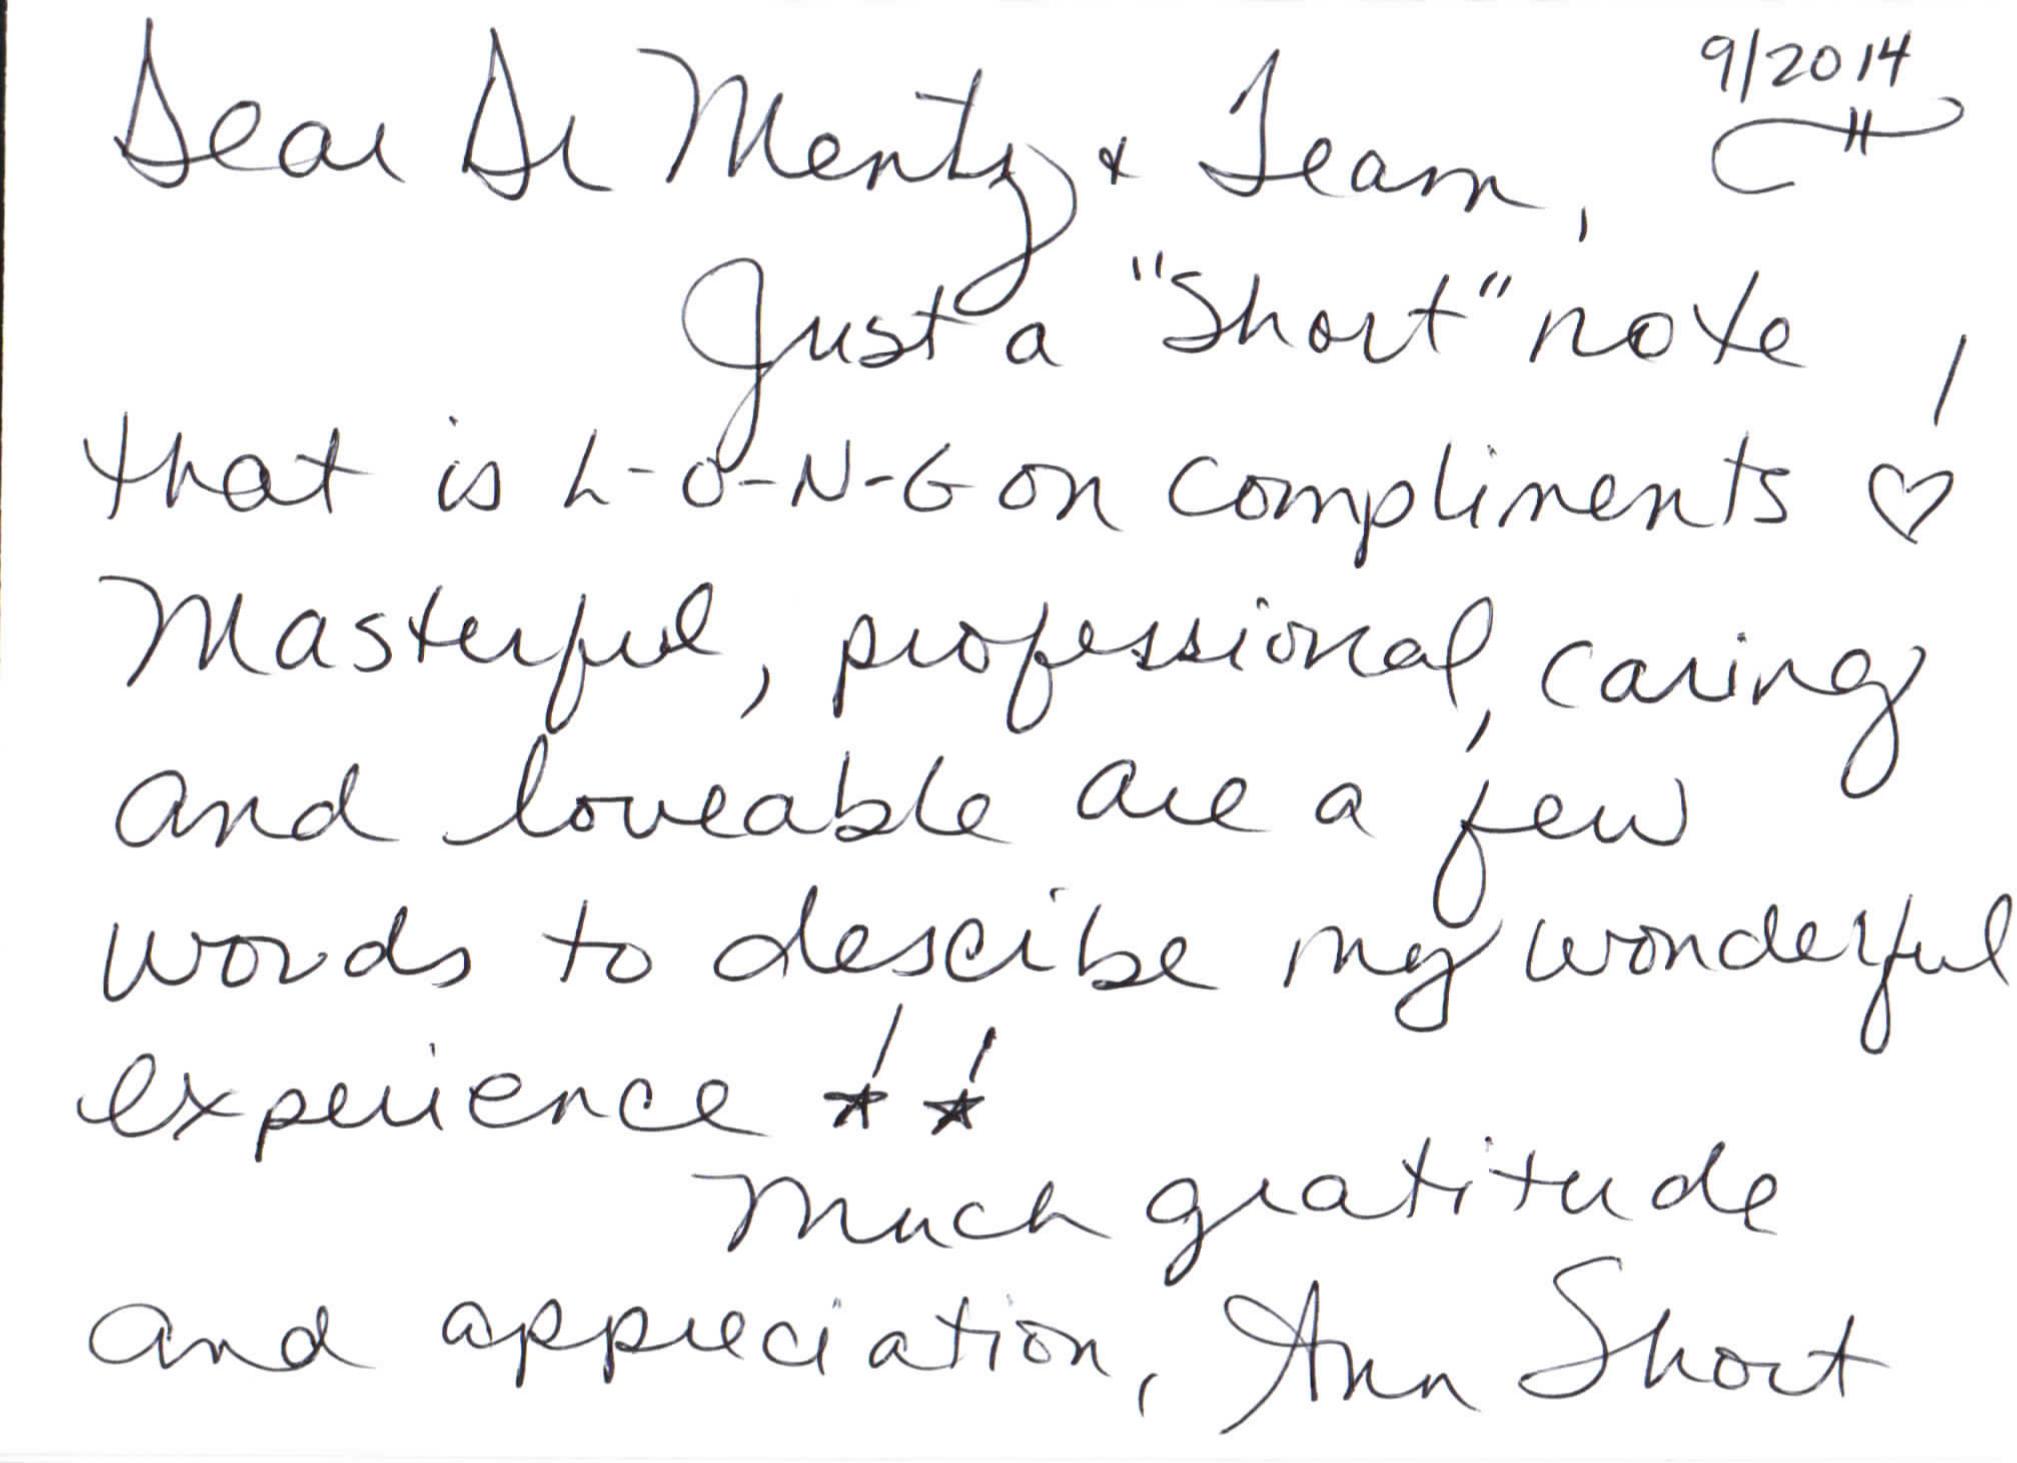 9/2014
Dear Dr Mentz & Team,
Just a "Short" note
that is L-O-N-G on compliments !
Masterful, professional, caring
and loveable are a few
words to descibe my wonderful
experience !!
Much gratitude
and appreciation, Ann Short